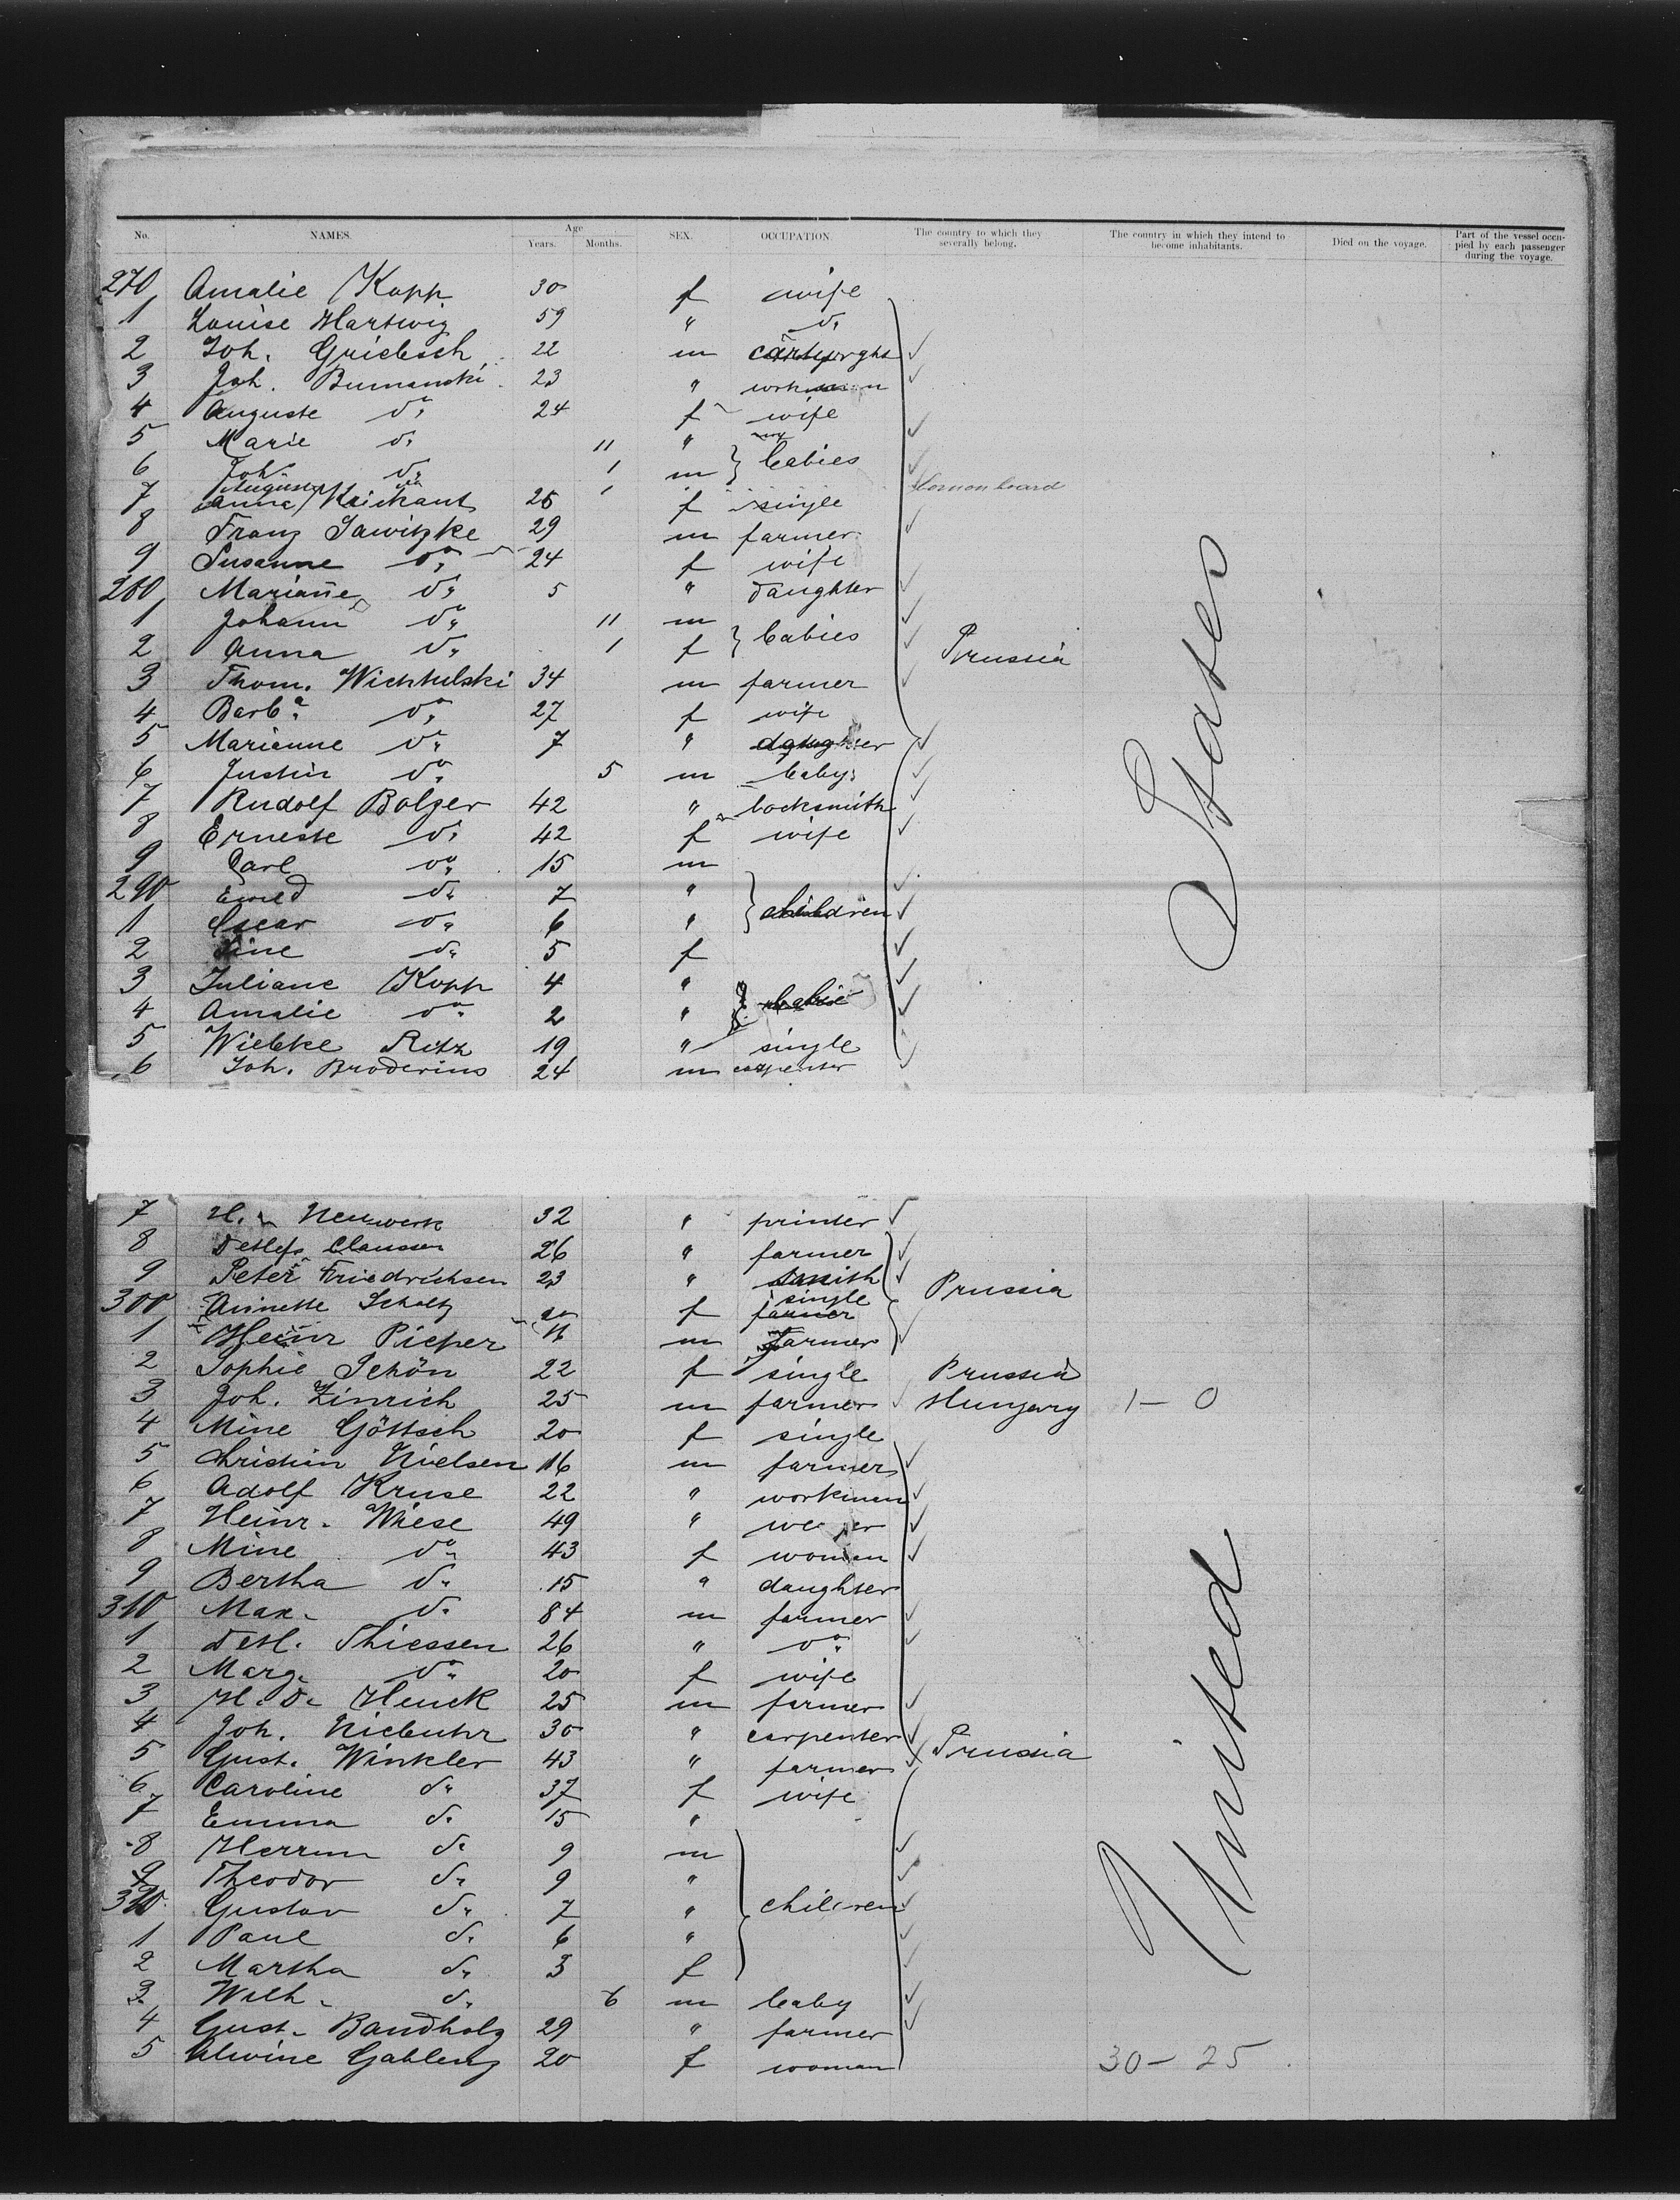 No. NAMES. Age Years. Months. SEX. OCCUPATION. The country to which they severally belong. The country in which they intend to become inhabitants. Died on the voyage. Part of the vessel occupied by each passenger during the voyage.
270 Amalie Kopp 30 f wife
1 Louise Hartwig 59 " do
2 Joh. Griebsch 22 m
3 Joh. 23 " workman
4 Auguste do 24 f wife
5 Marie do 11 "
6 Joh. do 1 m babies
7 Anna 25 f single
8 Franz Sawitzke 29 m farmer
9 Susanne do 24 f wife
280 Marianne do 5 " daughter
1 Johann do 11 m
2 Anna do 1 f babies Prussia
3 Thom. Wichtulski 34 m farmer
4 Barba do 27 f wife
5 Marianne do 7 " daughter
6 Justin do 5 m baby
7 Rudolf Bolger 42 " locksmith
8 Erneste do 42 f wife
9 Carl do 15 m
290 Ewald do 7 "
1 Oscar do 6 " children
2 Line do 5 f
3 Juliane Kopp 4 "
4 Amalie do 2 "
5 Wiebke Ritz 19 " single
6 Joh. Broderius 24 m carpenter
States
7 H. Neuwerk 32 " printer
8 Detlef Claussen 26 " farmer
9 Peter Friedrichsen 23 " smith Prussia
300 Annette Scholtz 20 f single
1 Heinr Pieper m farmer
2 Sophie Schön 22 f single Prussia
3 Joh. Zinrich 25 m farmer Hungary 1 - 0
4 Mine Göttsch 20 f single
5 Christian Nielsen 16 m farmer
6 Adolf Kruse 22 " workman
7 Heinr. Wiese 49 "
8 Mine do 43 f woman
9 Bertha do 15 " daughter
310 Max. do 84 m farmer
1 Detl. Thiessen 26 " do
2 Marg. do 20 f wife
3 H. D. Henck 25 m farmer
4 Joh. Niebuhr 30 " carpenter
5 Gust. Winkler 43 " farmer Prussia
6 Caroline do 37 f wife
7 Emma do 15 "
8 Herrm do 9 m
9 Theodor do 9 "
320 Gustav do 7 " children
1 Paul do 6 "
2 Martha do 3 f
3 Wilh. do 6 m baby
4 Gust. Bandholz 29 " farmer
5 Alwine Gahlenz 20 f woman
United
30 - 25